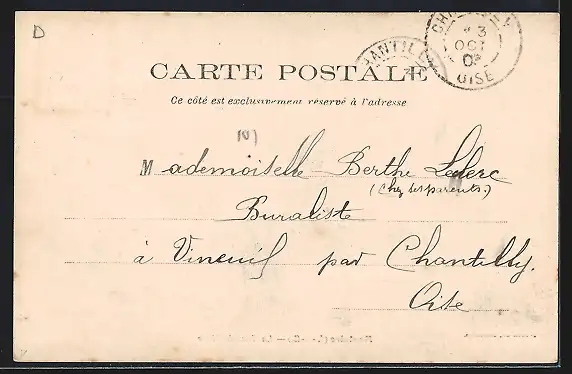 D
CHANTILLY
3
OCT
03
OISE
CARTE POSTALE
Ce côté est exclusivement réservé à l'adresse
Mademoiselle Berthe Leclerc
(Chez ses parents.)
Buraliste
à Vineuil par Chantilly.
Oise